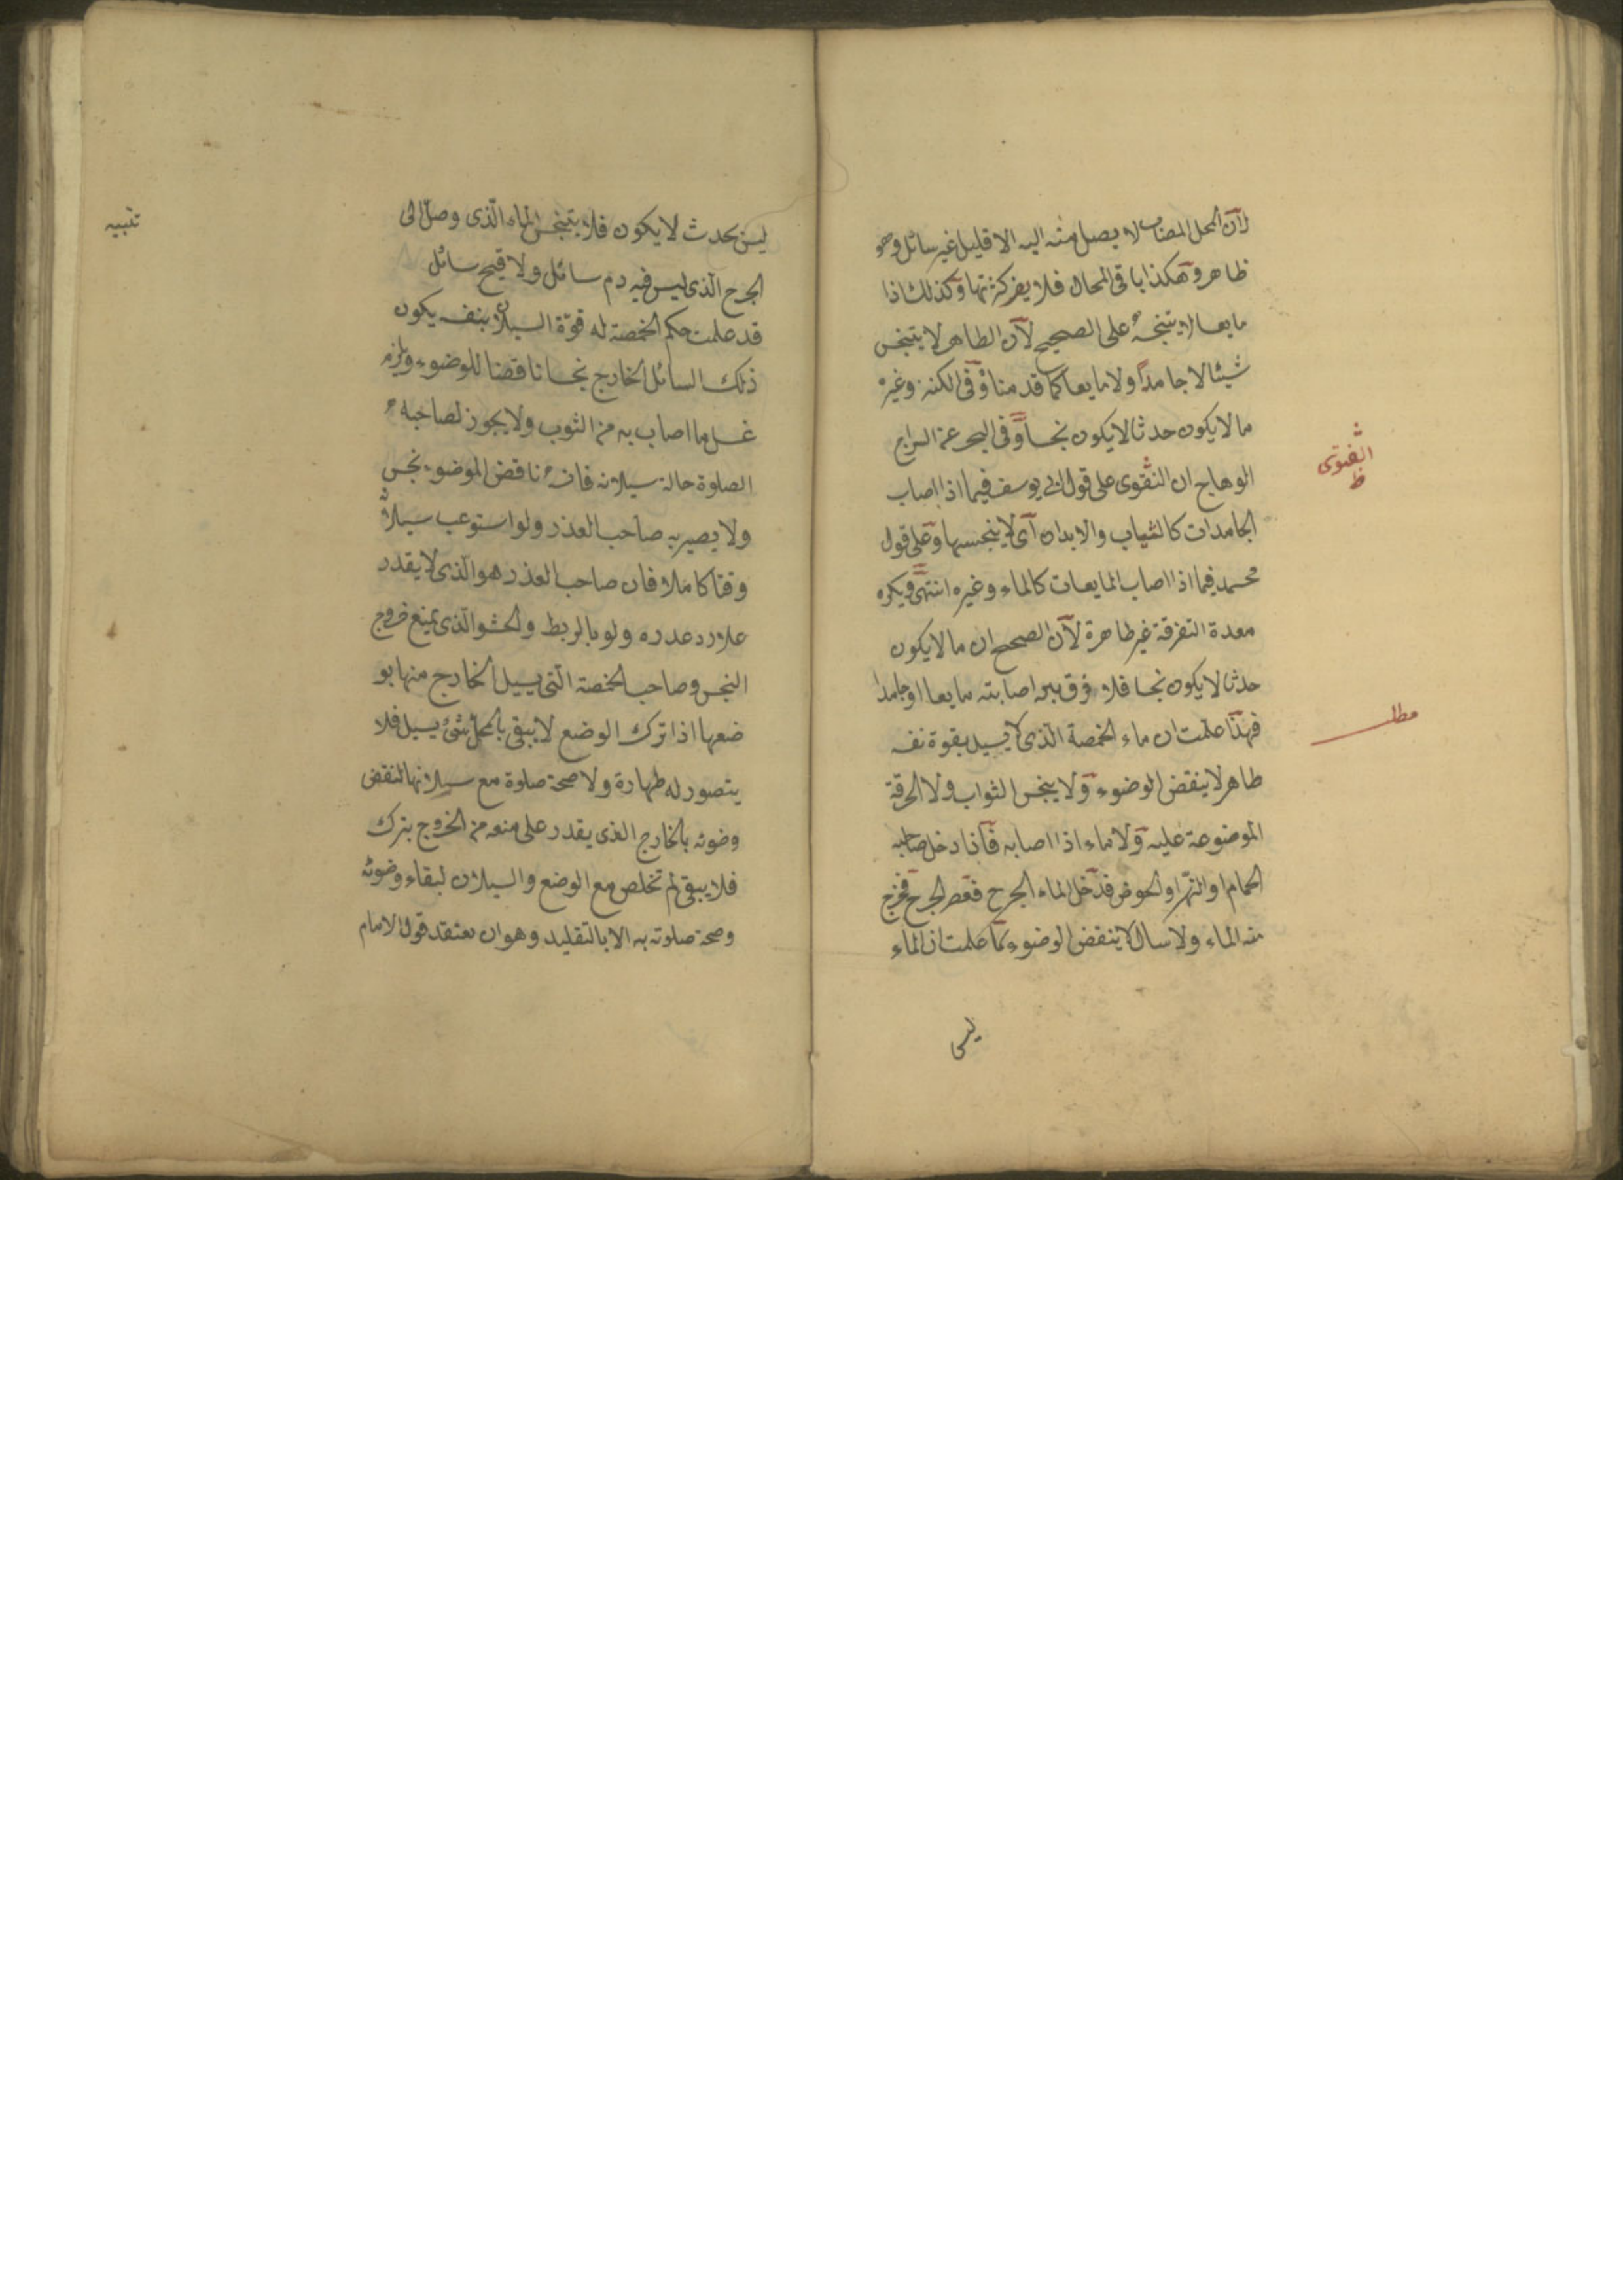 لان المحل المصاب لا يصل منه اليه الا قليل غير سائل وهو
ظاهر وهكذا باقى المحال فلا يضر كثرتها وكذلك اذا
مايعا لا ينجسه على الصحيح لان الطاهر لا ينجس
شيئا لا جامدا ولا مايعا كما قدمناه وفى الكنز وغيره
ما لا يكون حدثا لا يكون نجسا وفى البحر عن السراج
الوهاج ان التقوى على قول ابى يوسف فيما اذا اصاب
الفتوى
ظ
الجامدات كالثياب والابدان اى لا ينجسها وعلى قول
محمد فيما اذا اصاب المايعات كالماء وغيره انتهى
معدة التفرقة غير ظاهرة لان الصحيح ان ما لا يكون
حدثا لا يكون نجسا فلا فرق بين اصابته مايعا او جامدا
فبهذا علمت ان ماء الحمصة الذى لا يسيل بقوة نفسه
مطلب
طاهر لا ينقض الوضوء ولا ينجس الثواب ولا الخرقة
الموضوعة عليه ولا ماء اذا اصابه فاذا دخل صاحبه
الحمام او النهر او الحوض فدخل الماء الجرح فعصر الجرح فخرج
منه الماء ولا سال لا ينقض الوضوء لما علمت ان الماء
ليس
ليس بحدث لا يكون فلا يتنجس الماء الذى وصل الى
تنبيه
الجرح الذى ليس فيه دم سائل ولا قيح سائل
قد علمت حكم الحمصة له قوة السيلان بنفسه يكون
ذلك السائل الخارج نجسا ناقضا للوضوء ويلزم
غسل ما اصاب به من الثوب ولا يجوز لصاحبه
الصلوة حالة سيلانه فانه ناقض الموضوء نجس
ولا يصير به صاحب العذر ولو استوعب سيلانه
وقتا كاملا فان صاحب العذر هو الذى لا يقدر
على رد عذره ولو بالربط والحشو الذى يمنع خروج
النجس وصاحب الحمصة التى يسيل الخارج منها بو
ضعها اذا ترك الوضع لا يبقى بالمحل شئ يسيل فلا
يتصور له طهارة ولا صحة صلوة مع سيلانها لنقض
وضوئه بالخارج الذى يقدر على منعه من الخروج بترك
فلا يبقى له تخلص مع الوضع والسيلان لبقاء وضوئه
وصحة صلوته به الا بالتقليد وهو ان يعتقد قول الامام